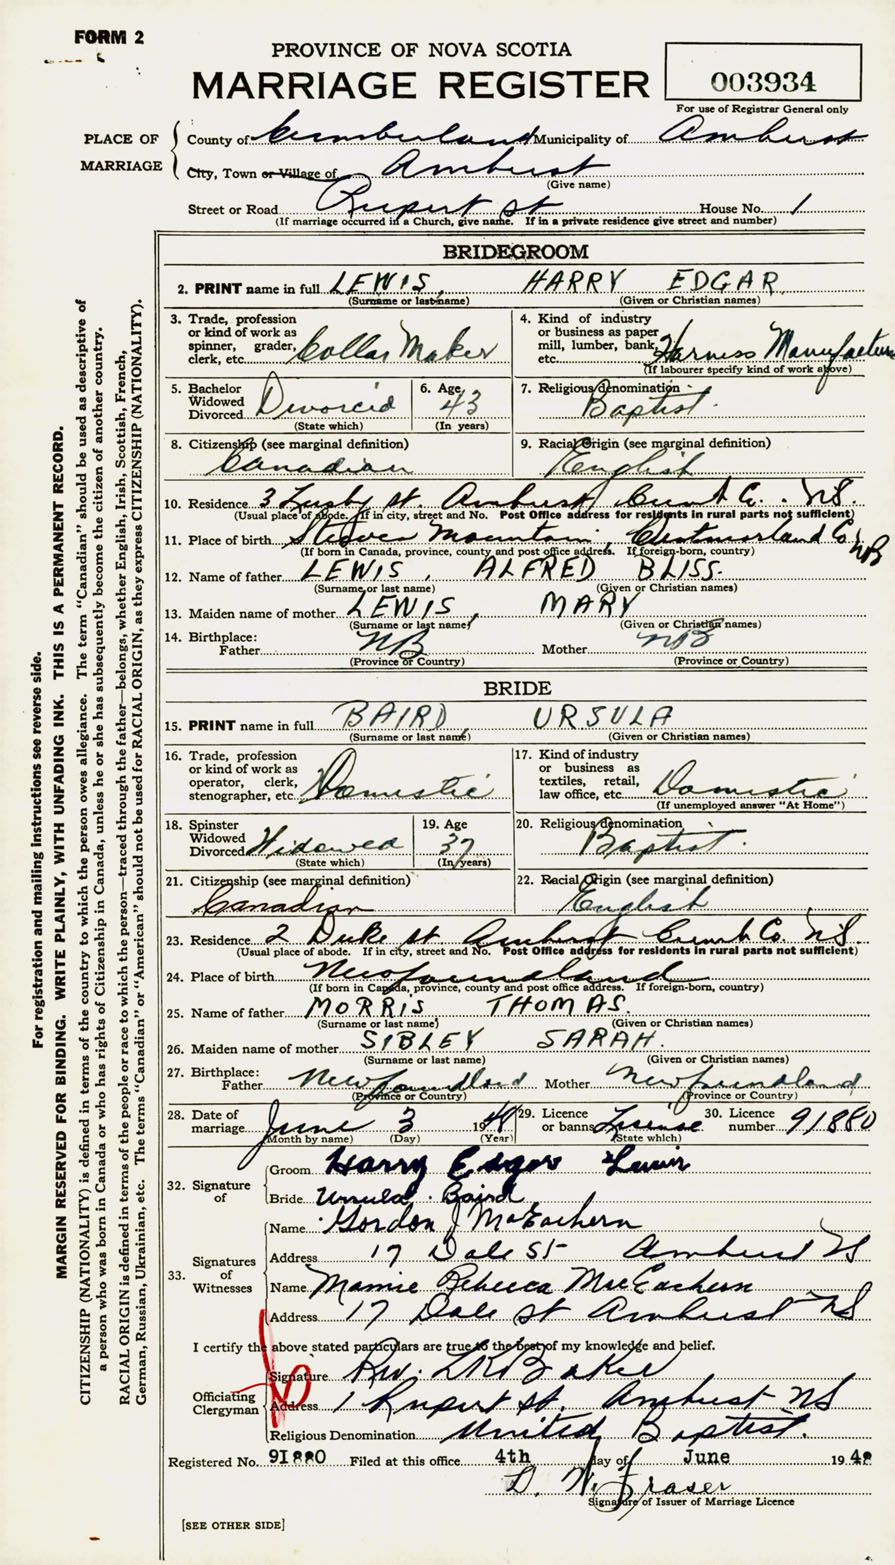 FORM 2
PROVINCE OF NOVA SCOTIA
MARRIAGE REGISTER
003934
For use of Registrar General only
PLACE OF MARRIAGE
County of Cumberland Municipality of Amherst
City, Town or Village of Amherst
(Give name)
Street or Road Rupert St House No. 1
(If marriage occurred in a Church, give name. If in a private residence give street and number)
BRIDEGROOM
2. PRINT name in full LEWIS, HARRY EDGAR
(Surname or last name) (Given or Christian names)
3. Trade, profession or kind of work as spinner, grader, clerk, etc. Collar Maker
4. Kind of industry or business as paper mill, lumber, bank, etc. Harness Manufacture
(If labourer specify kind of work above)
5. Bachelor Widowed Divorced Divorced
(State which)
6. Age 43
(In years)
7. Religious denomination Baptist.
8. Citizenship (see marginal definition)
Canadian
9. Racial Origin (see marginal definition)
English
10. Residence 3 Lusby st. Amherst Cumb Co. NS.
(Usual place of abode. If in city, street and No. Post Office address for residents in rural parts not sufficient)
11. Place of birth Steeves Mountain, Westmorland Co. NB
(If born in Canada, province, county and post office address. If foreign-born, country)
12. Name of father LEWIS, ALFRED BLISS.
(Surname or last name) (Given or Christian names)
13. Maiden name of mother LEWIS, MARY
(Surname or last name) (Given or Christian names)
14. Birthplace:
Father NB Mother NB
(Province or Country) (Province or Country)
BRIDE
15. PRINT name in full BAIRD URSULA
(Surname or last name) (Given or Christian names)
16. Trade, profession or kind of work as operator, clerk, stenographer, etc. Domestic
17. Kind of industry or business as textiles, retail, law office, etc. Domestic
(If unemployed answer "At Home")
18. Spinster Widowed Divorced Widowed
(State which)
19. Age 37
(In years)
20. Religious denomination Baptist.
21. Citizenship (see marginal definition)
Canadian
22. Racial Origin (see marginal definition)
English
23. Residence 2 Duke st. Amherst Cumb Co. NS.
(Usual place of abode. If in city, street and No. Post Office address for residents in rural parts not sufficient)
24. Place of birth Newfoundland
(If born in Canada, province, county and post office address. If foreign-born, country)
25. Name of father MORRIS THOMAS.
(Surname or last name) (Given or Christian names)
26. Maiden name of mother SIBLEY SARAH.
(Surname or last name) (Given or Christian names)
27. Birthplace:
Father Newfoundland Mother Newfoundland
(Province or Country) (Province or Country)
28. Date of marriage June 3 1948
(Month by name) (Day) (Year)
29. Licence or banns License
(State which)
30. Licence number 91880
32. Signature of
Groom Harry Edgar Lewis
Bride Ursula Baird
33. Signatures of Witnesses
Name Gordon J McEachern
Address 17 Dale St Amherst NS
Name Mamie Rebecca MacEachern
Address 17 Dale st Amherst NS
I certify the above stated particulars are true to the best of my knowledge and belief.
Officiating Clergyman
Signature Rev. L K Baker
Address 1 Rupert st. Amherst NS
Religious Denomination United Baptist.
Registered No. 91880 Filed at this office 4th day of June 1948
D. W. Fraser
Signature of Issuer of Marriage Licence
[SEE OTHER SIDE]
For registration and mailing instructions see reverse side.
MARGIN RESERVED FOR BINDING. WRITE PLAINLY, WITH UNFADING INK. THIS IS A PERMANENT RECORD.
CITIZENSHIP (NATIONALITY) is defined in terms of the country to which the person owes allegiance. The term "Canadian" should be used as descriptive of
a person who was born in Canada or who has rights of Citizenship in Canada, unless he or she has subsequently become the citizen of another country.
RACIAL ORIGIN is defined in terms of the people or race to which the person—traced through the father—belongs, whether English, Irish, Scottish, French,
German, Russian, Ukrainian, etc. The terms "Canadian" or "American" should not be used for RACIAL ORIGIN, as they express CITIZENSHIP (NATIONALITY).